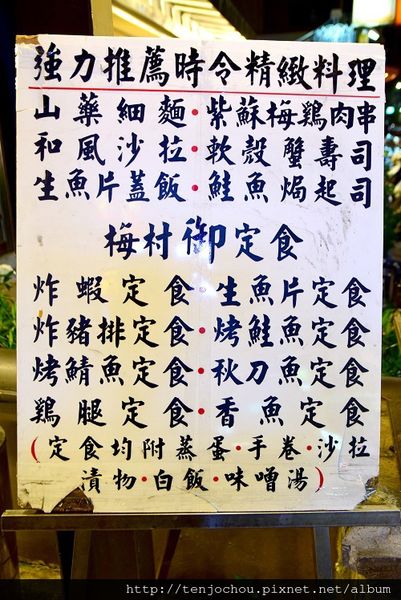 強力推薦時令精緻料理
山藥細麵·紫蘇梅鶏肉串
和風沙拉·軟殼蟹壽司
生魚片蓋飯·鮭魚焗起司
梅村御定食
炸蝦定食·生魚片定食
炸豬排定食·烤鮭魚定食
烤鯖魚定食·秋刀魚定食
鶏腿定食·香魚定食
(定食均附蒸蛋·手卷·沙拉
漬物·白飯·味噌湯)
http://tenjochou.pixnet.net/album